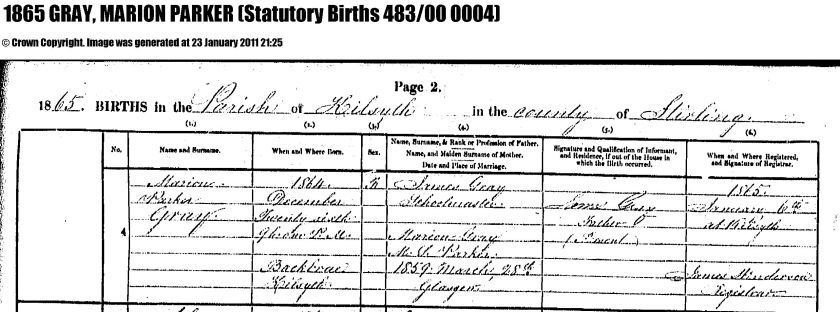 1865 GRAY, MARION PARKER (Statutory Births 483/00 0004)
© Crown Copyright. Image was generated at 23 January 2011 21:25
Page 2.
1865. BIRTHS in the Parish of Kilsyth in the county of Stirling
(1.) (2.) (3.) (4.) (5.) (6.)
No. Name and Surname. When and Where Born. Sex. Name, Surname, & Rank or Profession of Father. Name, and Maiden Surname of Mother. Date and Place of Marriage. Signature and Qualification of Informant, and Residence, if out of the House in which the Birth occurred. When and Where Registered, and Signature of Registrar.
4
Marion
Parker
Gray
1864
December
Twenty sixth
P.M.
Backbrae
Kilsyth
F
James Gray
Schoolmaster
Marion Gray
M.S. Parker
1859 March, 28th
Glasgow
James Gray
Father
(Present)
1865
January 6th
at Kilsyth
James Henderson
Registrar